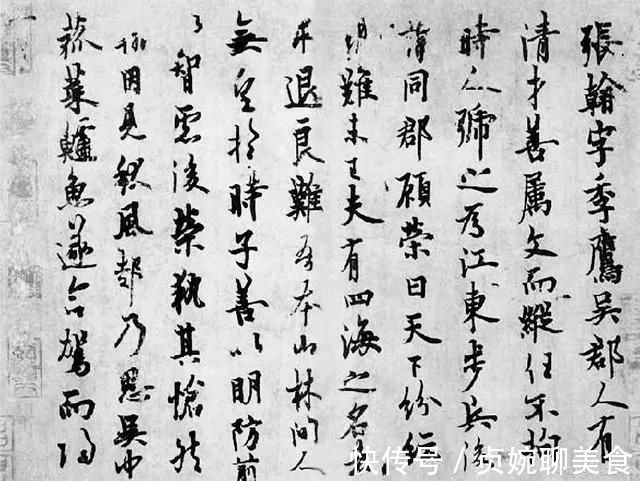 張翰字季鷹吳郡人有
清才善属文而縱任不拘
時人號之為江東步兵後
謂同郡顧榮曰天下紛紜
禍難未已夫有四海之名者
求退良難吾本山林間人
無望於時子善以明防前
以智慮後榮執其愴然
翰因見秋風起乃思吳中
菰菜鱸魚遂命駕而歸
快传号/贞婉聊美食